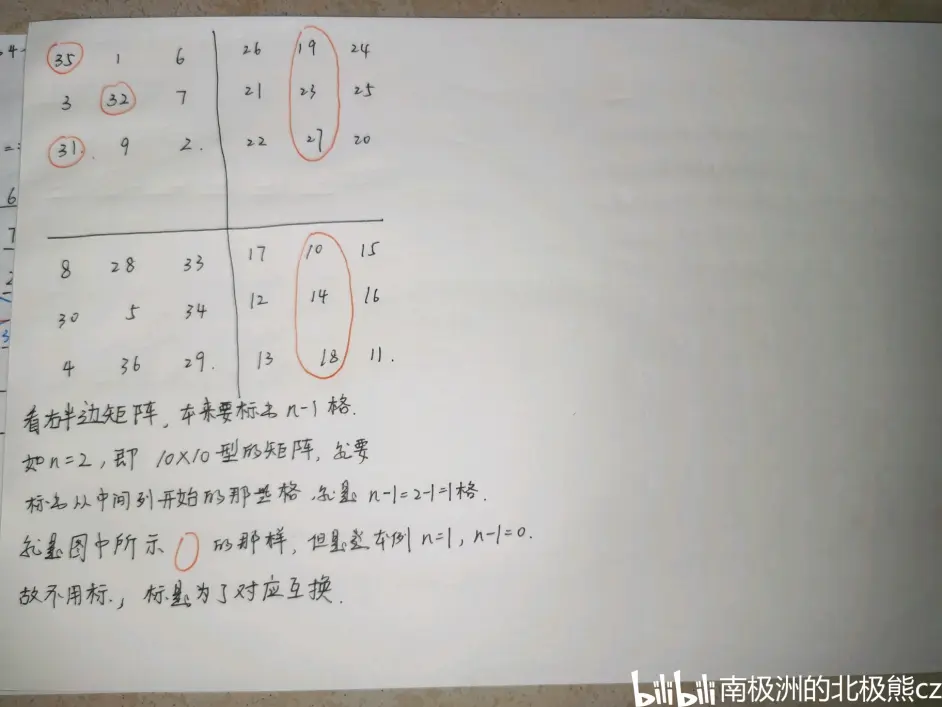 35 1 6 26 19 24
3 32 7 21 23 25
31. 9 2. 22 27 20
8 28 33 17 10 15
30 5 34 12 14 16
4 36 29. 13 18 11.
看右半边矩阵, 本来要标出 n-1 格.
如n=2, 即 10×10 型的矩阵, 就要
标出从中间列开始的那些格 就是 n-1=2-1=1格.
就是图中所示 的那样, 但是本例 n=1, n-1=0.
故不用标., 标是为了对应互换.
bilibili 南极洲的北极熊cz